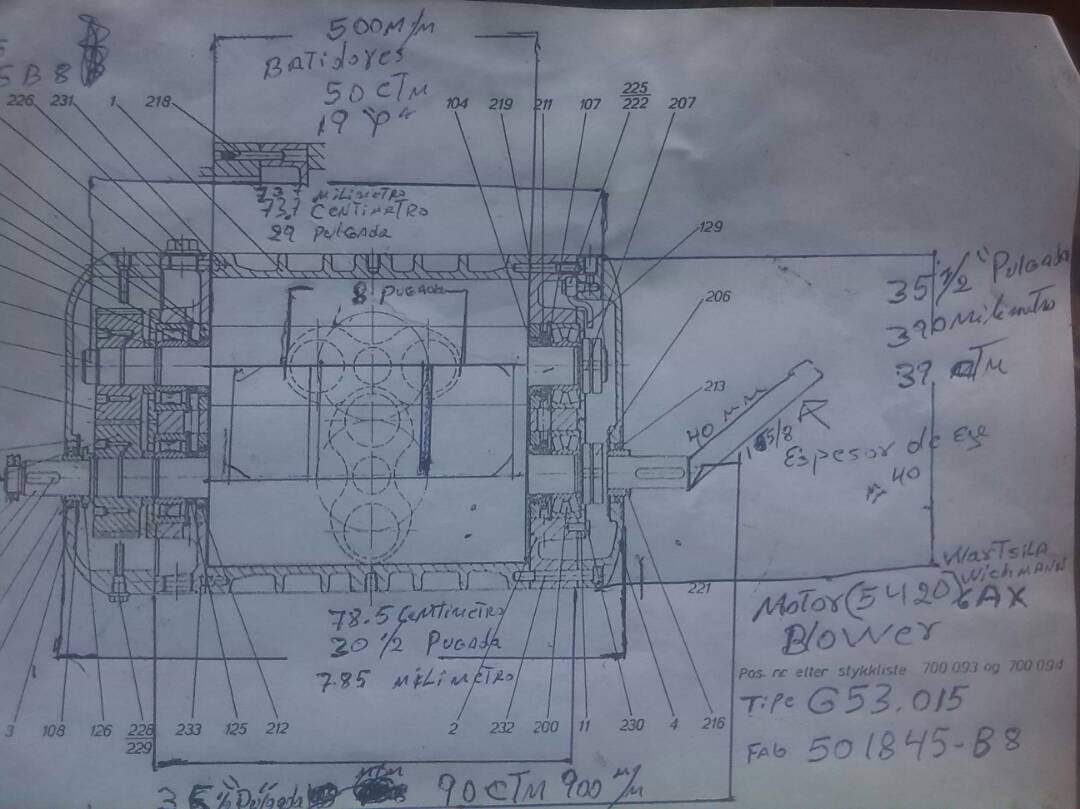 5 B 8
500 M/M
BATIDORES
50 CTM
19 "P"
226 231 1 218
104 219 211 107 225
222 207
737 MILIMETRO
73.7 CENTIMETRO
29 PULGADA
129
8 PUGADA
35 1/2 "Pulgada
390 Milimetro
39 CTM
206
213
40 MM
1 5/8
Espesor de Eje
40
WARTSILA
WICHMANN
MOTOR (5420) 6AX
BLOWER
221
Pos. nr. etter stykkliste 700 093 og 700 094
TIPE G53.015
FAB 501845-B8
78.5 CENTIMETRO
30 1/2 PUGADA
7.85 MILIMETRO
3 108 126 228
229 233 125 212
2 232 200 11 230 4 216
Pulgada
90 CTM 900 M/M